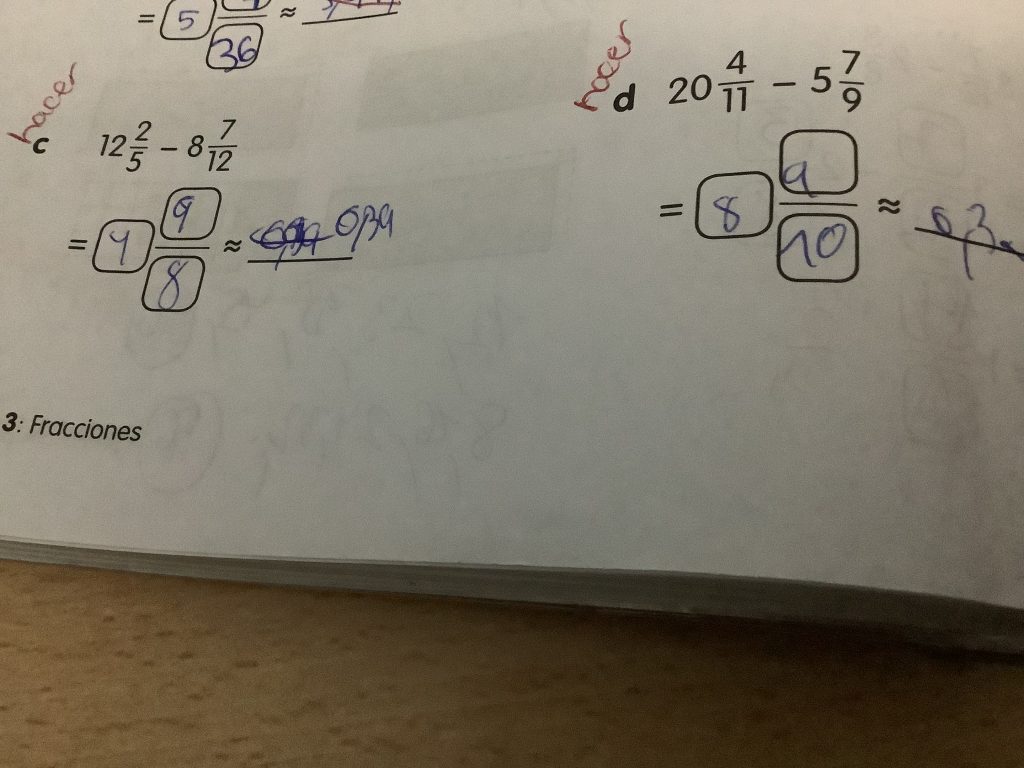 = 5 36 ≈
hacer
c 12 2/5 − 8 7/12
= 4 9/8 ≈ 0,39
hacer
d 20 4/11 − 5 7/9
= 8 9/10 ≈ 0,3
3: Fracciones